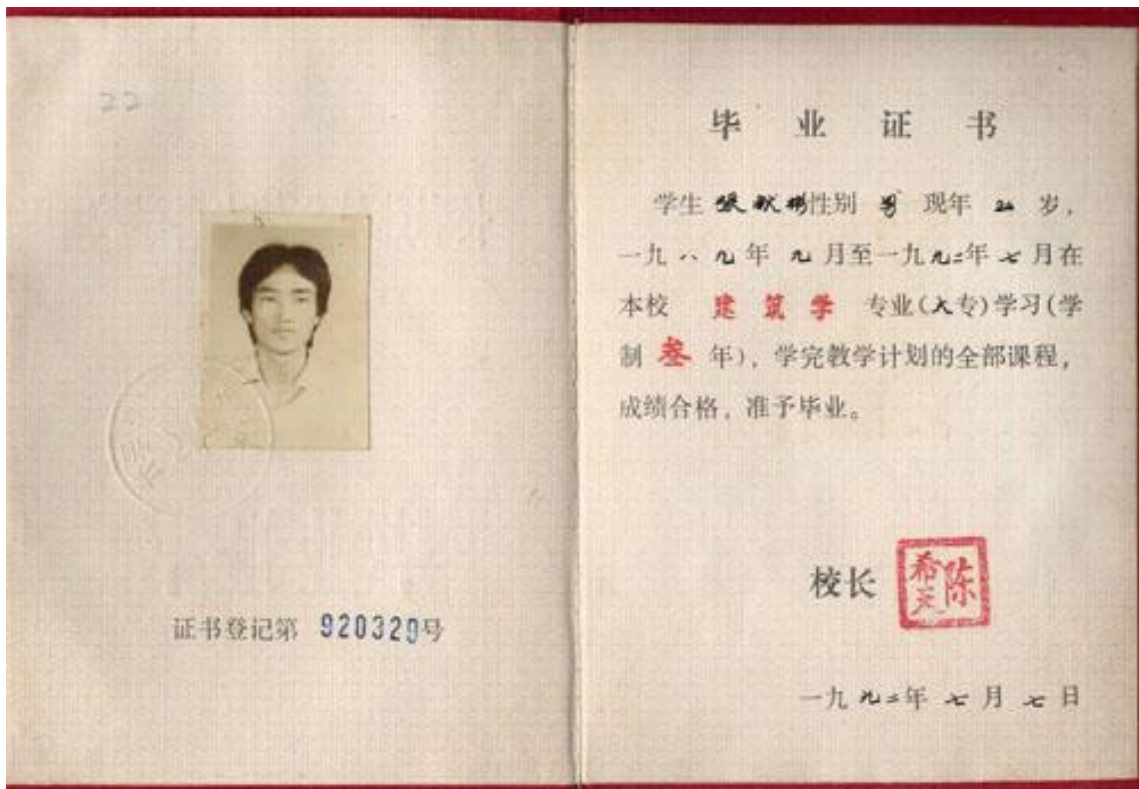 22
证书登记第 920329号
毕业证书
学生 張献彬性别 男 现年 24 岁，
一九八九年九月至一九九二年七月在
本校 建筑学 专业(大专)学习(学
制 叁 年)，学完教学计划的全部课程，
成绩合格，准予毕业。
校长 陈希天
一九九二年七月七日